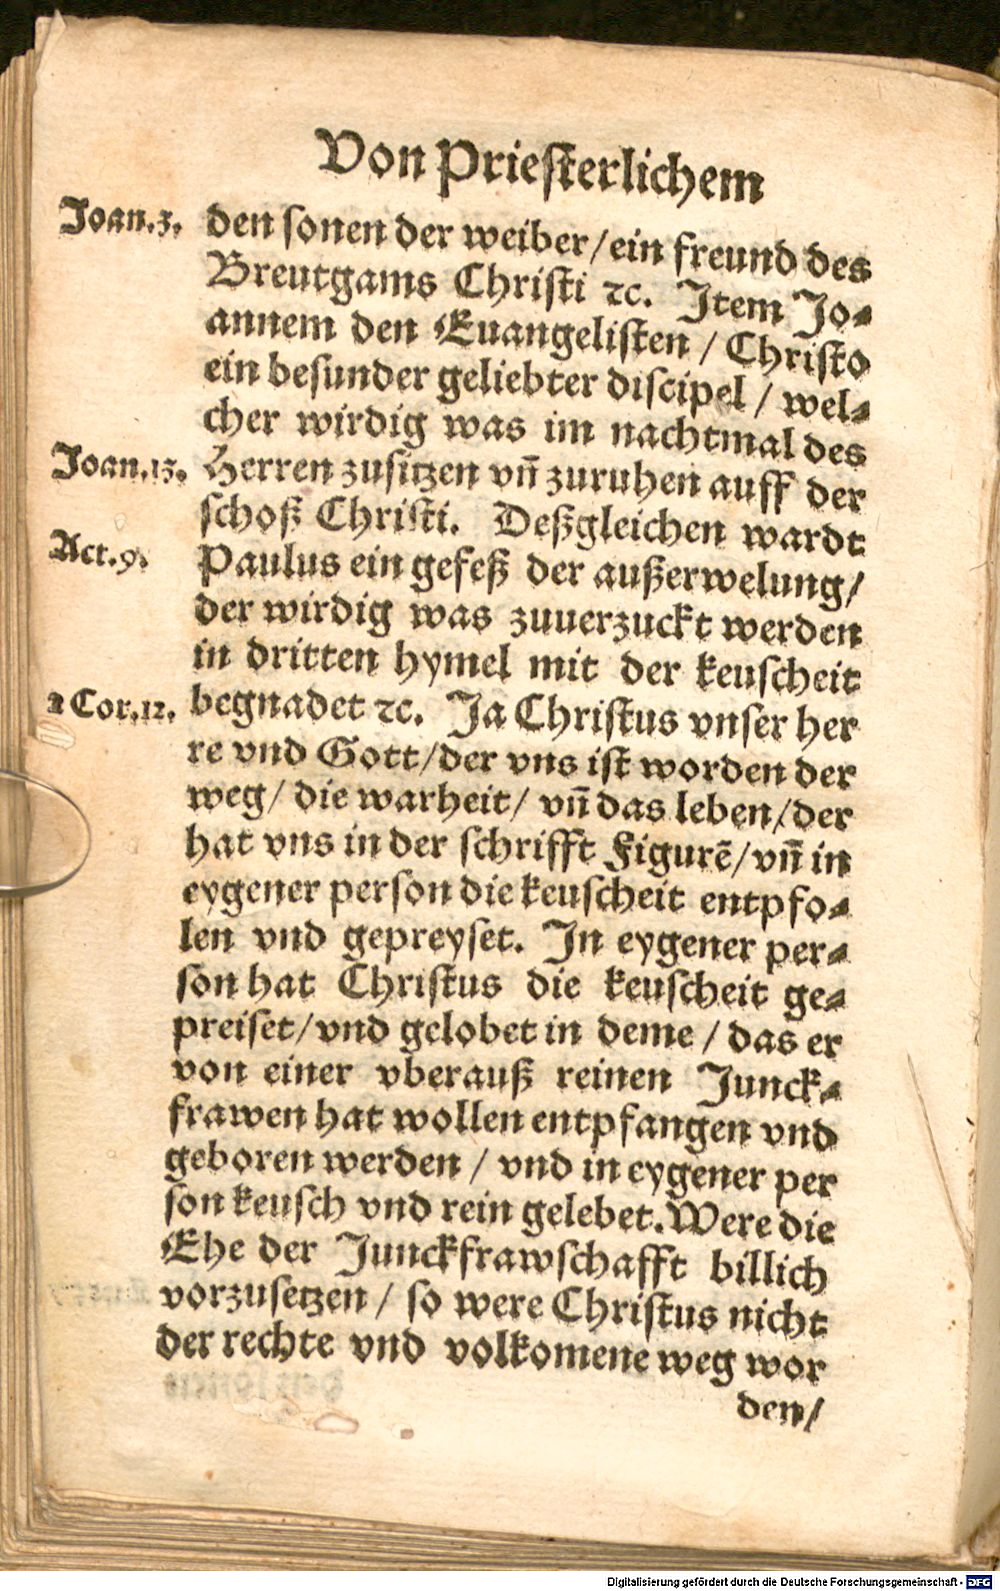 Von Priesterlichem
Joan.3. den sonen der weiber/ein freund des
Breutgams Christi ꝛc. Item Jo⸗
annem den Euangelisten / Christo
ein besunder geliebter discipel / wel⸗
cher wirdig was im nachtmal des
Joan.13. Herren zusitzen vñ zuruhen auff der
schoß Christi. Deßgleichen wardt
Act.9. Paulus ein gefeß der außerwelung/
der wirdig was zuuerzuckt werden
in dritten hymel mit der keuscheit
2 Cor.12. begnadet ꝛc. Ja Christus vnser her
re vnd Gott/der vns ist worden der
weg/ die warheit/ vñ das leben/der
hat vns in der schrifft Figurẽ/vñ in
eygener person die keuscheit entpfo⸗
len vnd gepreyset. In eygener per⸗
son hat Christus die keuscheit ge⸗
preiset/vnd gelobet in deme / das er
von einer vberauß reinen Junck⸗
frawen hat wollen entpfangen vnd
geboren werden / vnd in eygener per
son keusch vnd rein gelebet. Were die
Ehe der Junckfrawschafft billich
vorzusetzen / so were Christus nicht
der rechte vnd volkomene weg wor
den/
Digitalisierung gefördert durch die Deutsche Forschungsgemeinschaft - DFG